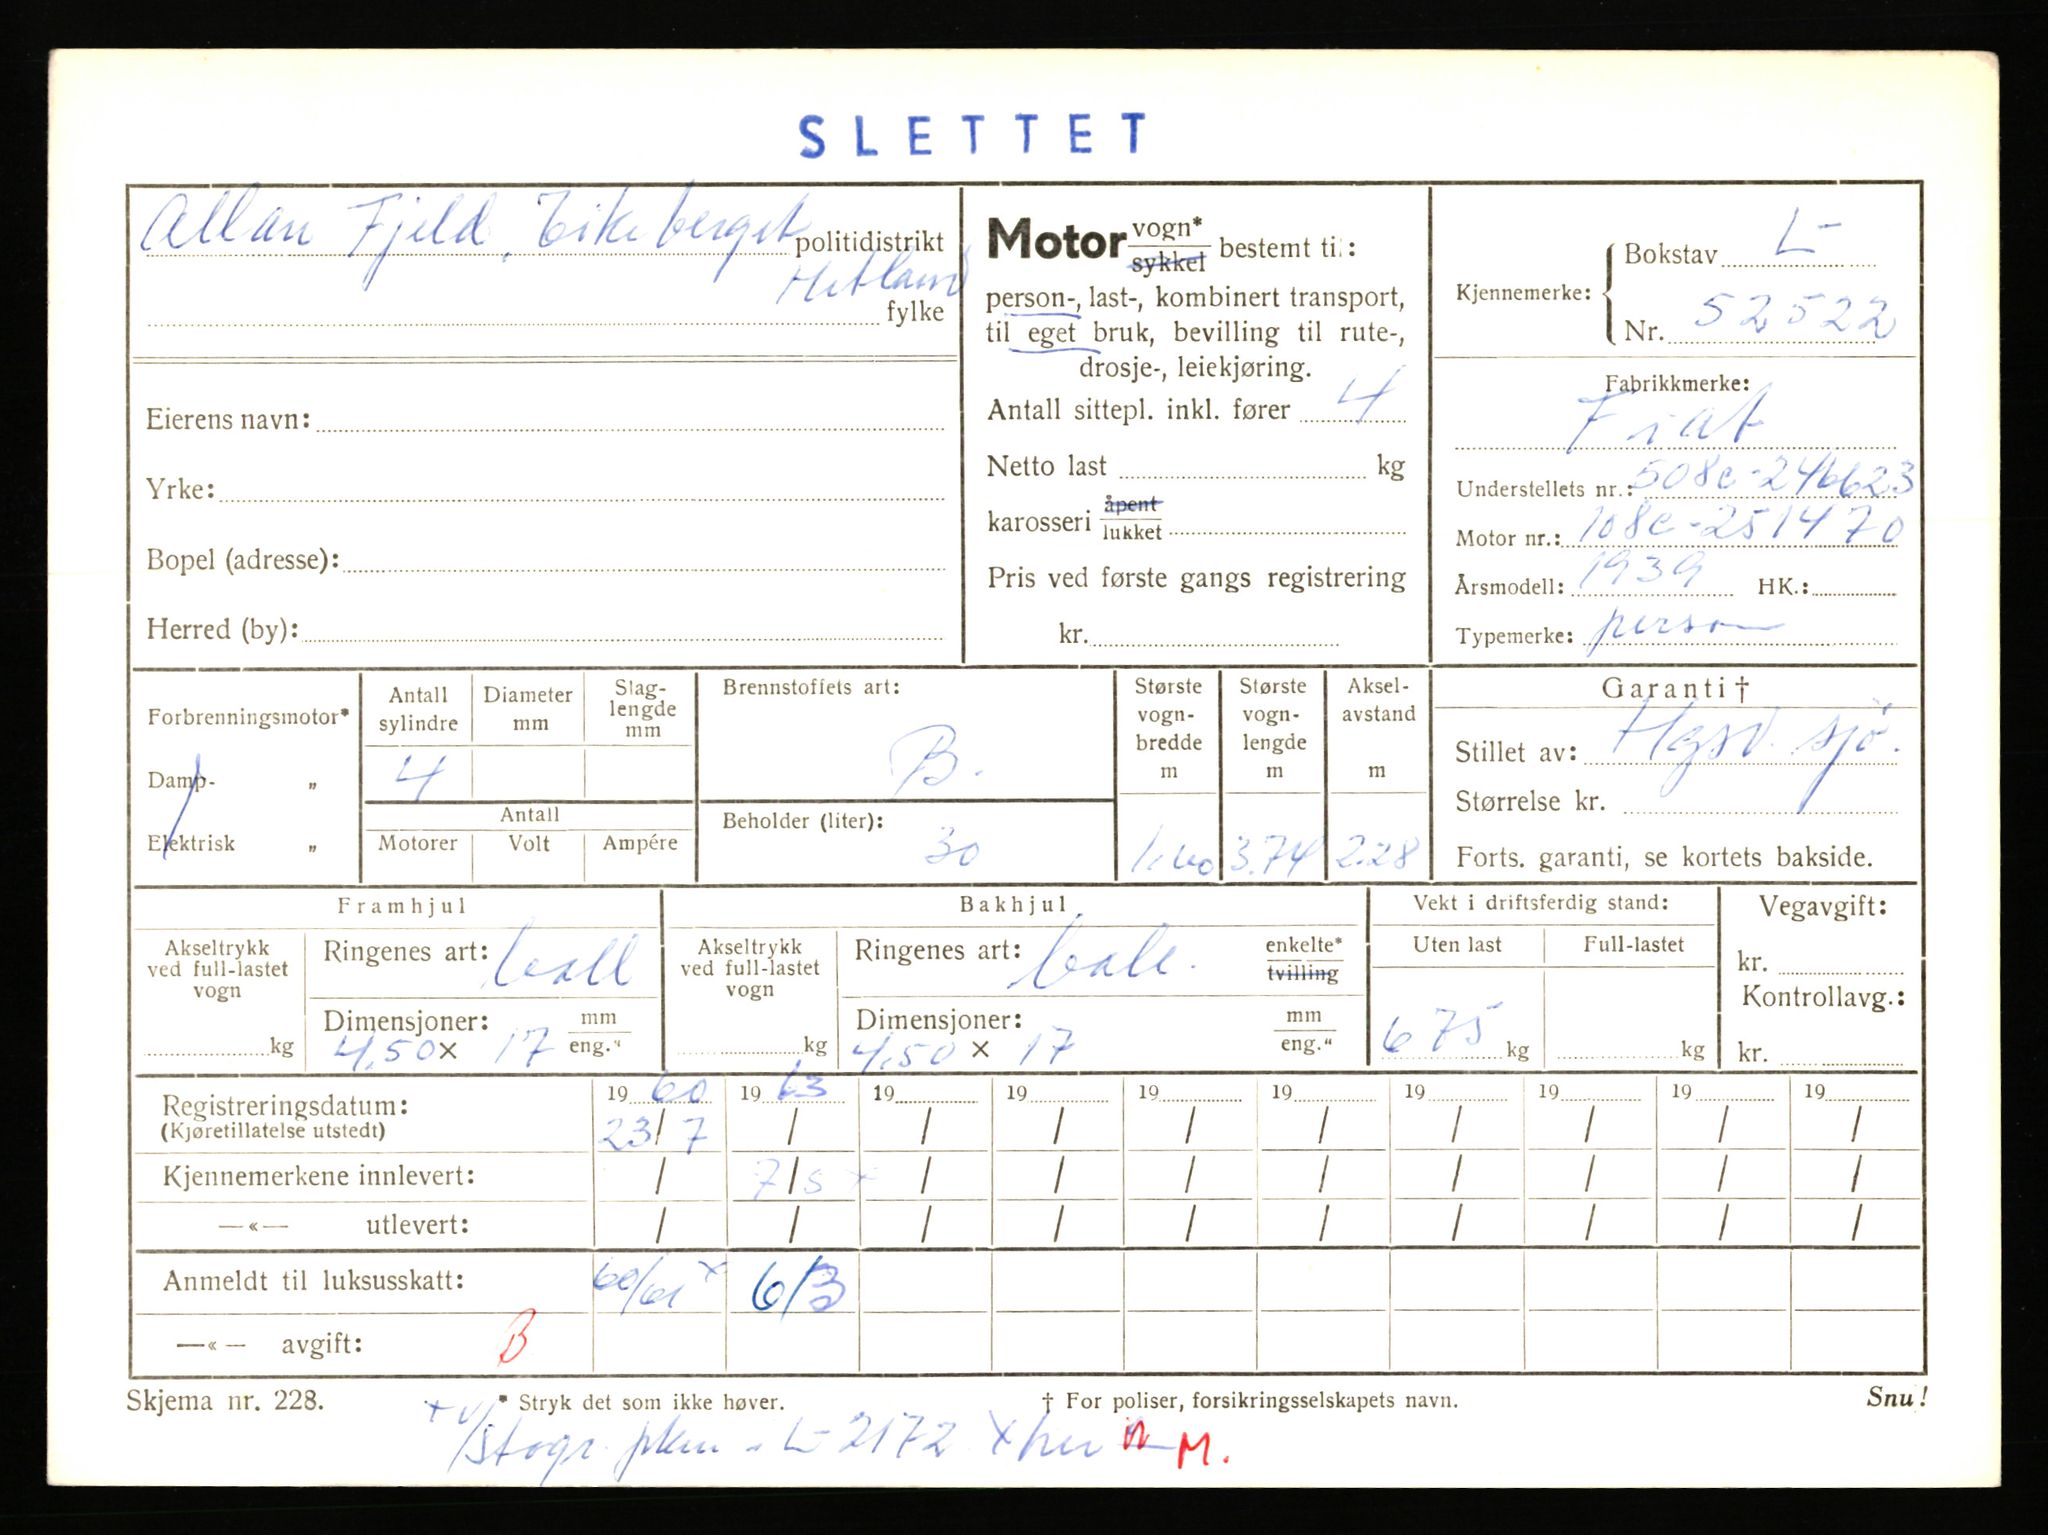 SLETTET
Allan Fjeld, Eikeberget
politidistrikt
Hetland
fylke
Eierens navn:
Yrke:
Bopel (adresse):
Herred (by):
Motor vogn*
sykkel bestemt til:
person-, last-, kombinert transport,
til eget bruk, bevilling til rute-,
drosje-, leiekjøring.
Antall sittepl. inkl. fører 4
Netto last kg
karosseri åpent
lukket
Pris ved første gangs registrering
kr.
Kjennemerke: Bokstav L-
Nr. 52522
Fabrikkmerke:
Fiat
Understellets nr.: 508c-246623
Motor nr.: 108c-251470
Årsmodell: 1939 HK.:
Typemerke: person
Forbrenningsmotor*
Damp- „
Elektrisk „
Antall sylindre 4
Diameter mm
Slag-lengde mm
Antall
Motorer Volt Ampére
Brennstoffets art:
B.
Beholder (liter):
30
Største vogn-bredde m 1.60
Største vogn-lengde m 3.74
Aksel-avstand m 2.28
Garanti †
Stillet av: Hgsd. sjø.
Størrelse kr.
Forts. garanti, se kortets bakside.
Framhjul
Akseltrykk ved full-lastet vogn
kg
Ringenes art: ball
Dimensjoner: mm
4,50 x 17 eng."
Bakhjul
Akseltrykk ved full-lastet vogn
kg
Ringenes art: ball. enkelte*
tvilling
Dimensjoner: mm
4,50 x 17 eng."
Vekt i driftsferdig stand:
Uten last Full-lastet
675 kg kg
Vegavgift:
kr.
Kontrollavg.:
kr.
19 60 19 63 19 19 19 19 19 19 19 19
Registreringsdatum:
(Kjøretillatelse utstedt) 23/7 / / / / / / / / /
Kjennemerkene innlevert: / 7/5 x / / / / / / / /
—«— utlevert: / / / / / / / / / /
Anmeldt til luksusskatt: 60/61 x 6/3
—«— avgift: B
Skjema nr. 228. * Stryk det som ikke høver. † For poliser, forsikringsselskapets navn. Snu!
+ v/ L-2172 x M.